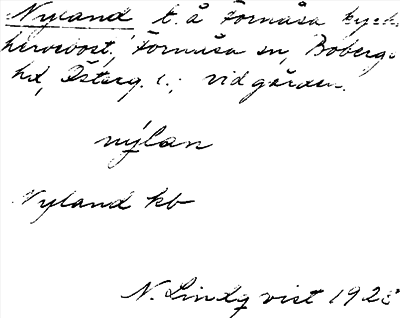 Nyland t. å Fornåsa kyrk
herrebost, Fornåsa sn, Boberg
hd, Österg. l.; vid gården.
nýlan
Nyland kb
N. Lindqvist 1923